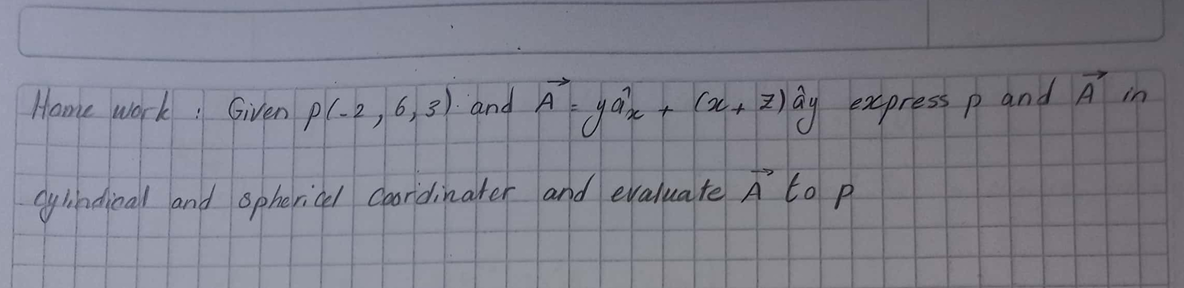 Home work : Given p(-2, 6, 3) and A⃗ = yâx + (x + z)ây express p and A⃗ in
cylindical and sphericel coordinater and evaluate A⃗ to p